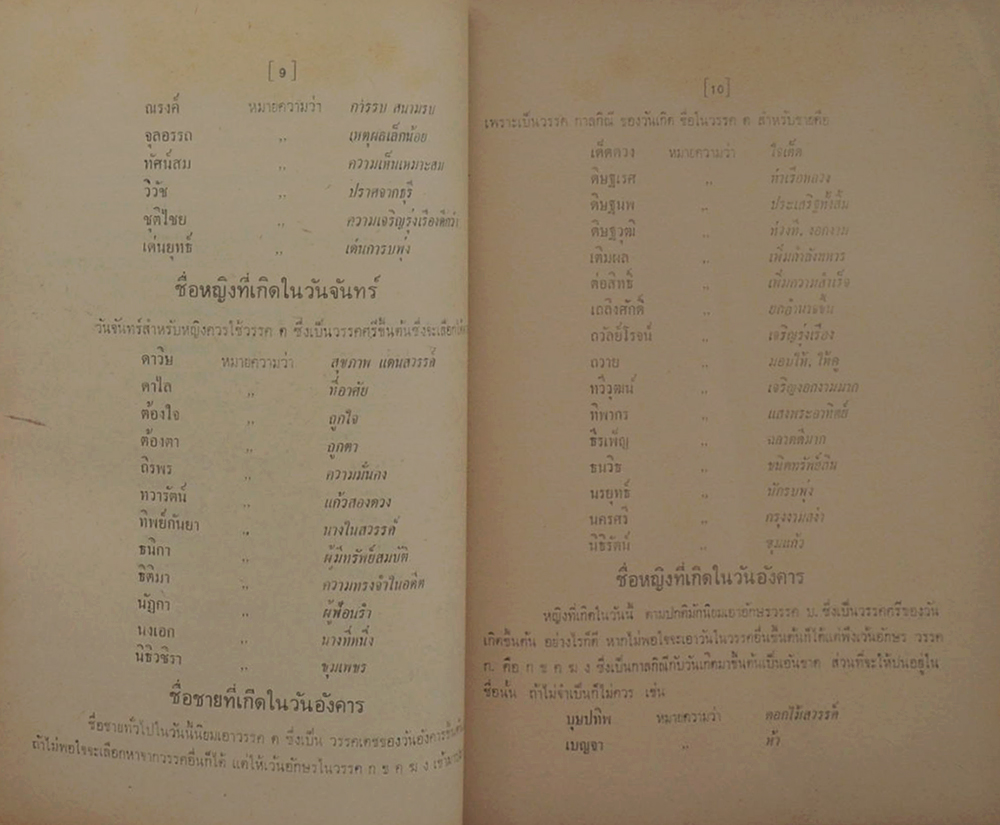 [ 9 ]
ณรงค์ หมายความว่า การรบ สนามรบ
จุลอรรถ ,, เหตุผลเล็กน้อย
ทัศน์สม ,, ความเห็นเหมาะสม
วิวัช ,, ปราศจากธุรี
ชุติไชย ,, ความเจริญรุ่งเรือง
เด่นยุทธ์ ,, เด่นการบพุ่ง
ชื่อหญิงที่เกิดในวันจันทร์
วันจันทร์สำหรับหญิงควรใช้วรรค ต ซึ่งเป็นวรรคศรีขึ้นต้นซึ่งจะเลือก
ดาวิษ หมายความว่า สุขภาพ แดนสวรรค์
ดาไล ,, ที่อาศัย
ต้องใจ ,, ถูกใจ
ต้องตา ,, ถูกตา
ถิรพร ,, ความมั่นคง
ทวารัตน์ ,, แก้วสองดวง
ทิพย์กันยา ,, นางในสวรรค์
ธนิกา ,, ผู้มีทรัพย์สมบัติ
ธิติมา ,, ความทรงจำในอดีต
นัฏกา ,, ผู้ฟ้อนรำ
นงเอก ,, นางที่หนึ่ง
นิธิวชิรา ,, ขุมเพชร
ชื่อชายที่เกิดในวันอังคาร
ชื่อชายทั่วไปในวันนี้นิยมเอาวรรค ต ซึ่งเป็น วรรคเดชของวันอังคารขึ้นต้น
ถ้าไม่พอใจจะเลือกหาจากวรรคอื่นก็ได้ แต่ให้เว้นอักษรในวรรค ก ข ค ฆ ง
[10]
เพราะเป็นวรรค กาลกิณี ของวันเกิด ชื่อในวรรค ต สำหรับชายคือ
เด็ดดวง หมายความว่า ใจเด็ด
ดิษฐเรศ ,, ท่าเรือหลวง
ดิษฐนพ ,, ประเสริฐทั้งสิ้น
ดิษฐวุฒิ ,, ท่วงที, งอกงาม
เติมผล ,, เพิ่มกำลังทหาร
ต่อสิทธิ์ ,, เพิ่มความสำเร็จ
เถลิงศักดิ์ ,, ยกอำนาจขึ้น
ถวัลย์โรจน์ ,, เจริญรุ่งเรือง
ถวาย ,, มอบให้, ให้ดู
ทวีวุฒน์ ,, เจริญงอกงามมาก
ทิพากร ,, แสงพระอาทิตย์
ธีรเพ็ญ ,, ฉลาดดีมาก
ธนวิช ,, ชนิดทรัพย์สิน
นรยุทธ์ ,, นักรบพุ่ง
นครศรี ,, กรุงงามสง่า
นิธิรัตน์ ,, ขุมแก้ว
ชื่อหญิงที่เกิดในวันอังคาร
หญิงที่เกิดในวันนี้ ตามปกติมักนิยมเอาอักษรวรรค บ. ซึ่งเป็นวรรคศรีของวัน
เกิดขึ้นต้น อย่างไรก็ดี หากไม่พอใจจะเอาวันในวรรคอื่นขึ้นต้นก็ได้แต่พึงเว้นอักษร วรรค
ก. คือ ก ข ค ฆ ง ซึ่งเป็นกาลกิณีกับวันเกิดมาขึ้นต้นเป็นอันขาด ส่วนที่จะให้ปนอยู่ใน
ชื่อนั้น ถ้าไม่จำเป็นก็ไม่ควร เช่น
บุษปทิพ หมายความว่า ดอกไม้สวรรค์
เบญจา ,, ห้า